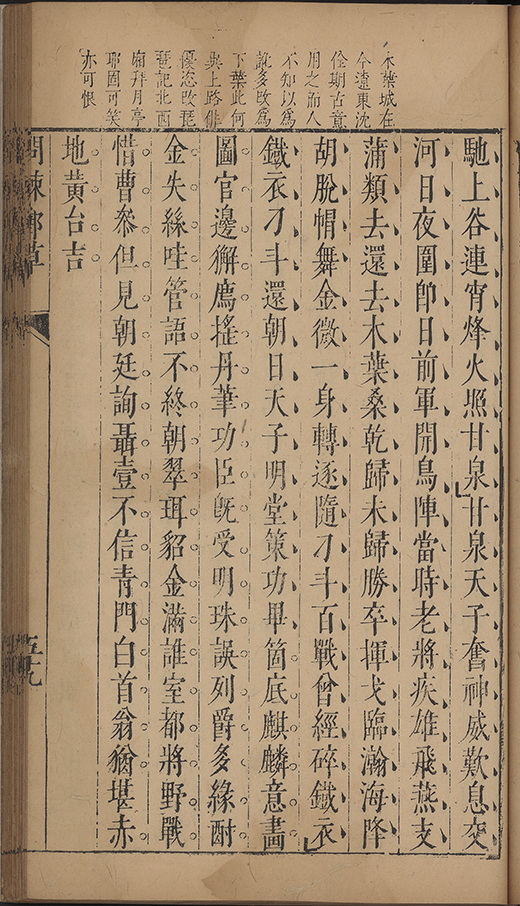 木葉城在
今遼東沈
佺期古意
用之而人
不知以爲
訛多改爲
下葉此何
異上路俳
優恣改琵
琶記北西
廂拜月亭
耶固可笑
亦可恨
馳上谷連宵烽火照甘泉甘泉天子奮神威歎息交
河日夜圍卽日前軍開鳥陣當時老將疾雄飛燕支
蒲類去還去木葉桑乾歸未歸勝卒揮戈臨瀚海降
胡脫帽舞金微一身轉逐隨刁斗百戰曾經碎鐵衣
鐵衣刁斗還朝日天子明堂策功畢箇底麒麟意畫
圖官邊獬廌搖丹筆功臣旣受明珠誤列爵多緣酎
金失絲哇管語不終朝翠珥貂金滿誰室都將野戰
惜曹參但見朝廷詢聶壹不信青門白首翁猶堪赤
地黃台吉
問棘郵草